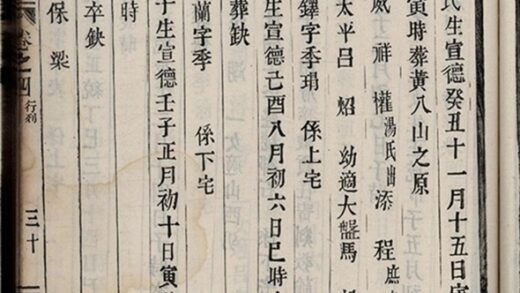 氏生宣德癸丑十一月十五日
寅時葬黃八山之原
威 祥 權 湯氏出 添 程 庶
太平呂 炤 幼適大盤馬
鐸字季琄 係上宅
生宣德己酉八月初六日巳時
葬缺
蘭字季 係下宅
子生宣德壬子正月初十日寅
時
卒缺
保 梁
卷之四 行列 三十